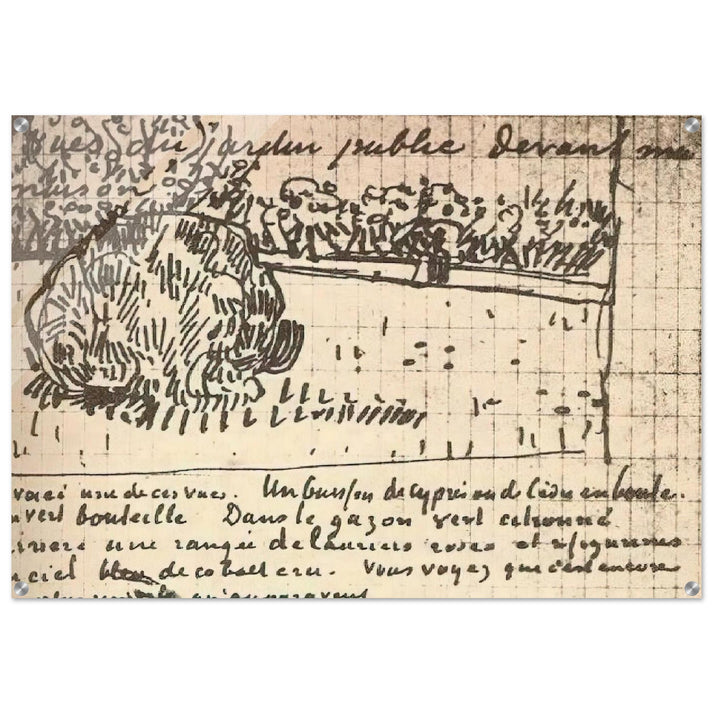 vues du jardin public devant ma
maison
voici une de ces vues. Un buisson de cyprès ou de cèdre en boule.
vert bouteille Dans le gazon vert citronné
une rangée de lauriers roses et 2 figurines
ciel bleu de cobalt cru. Vous voyez que c'est encore
plus simple qu'auparavant